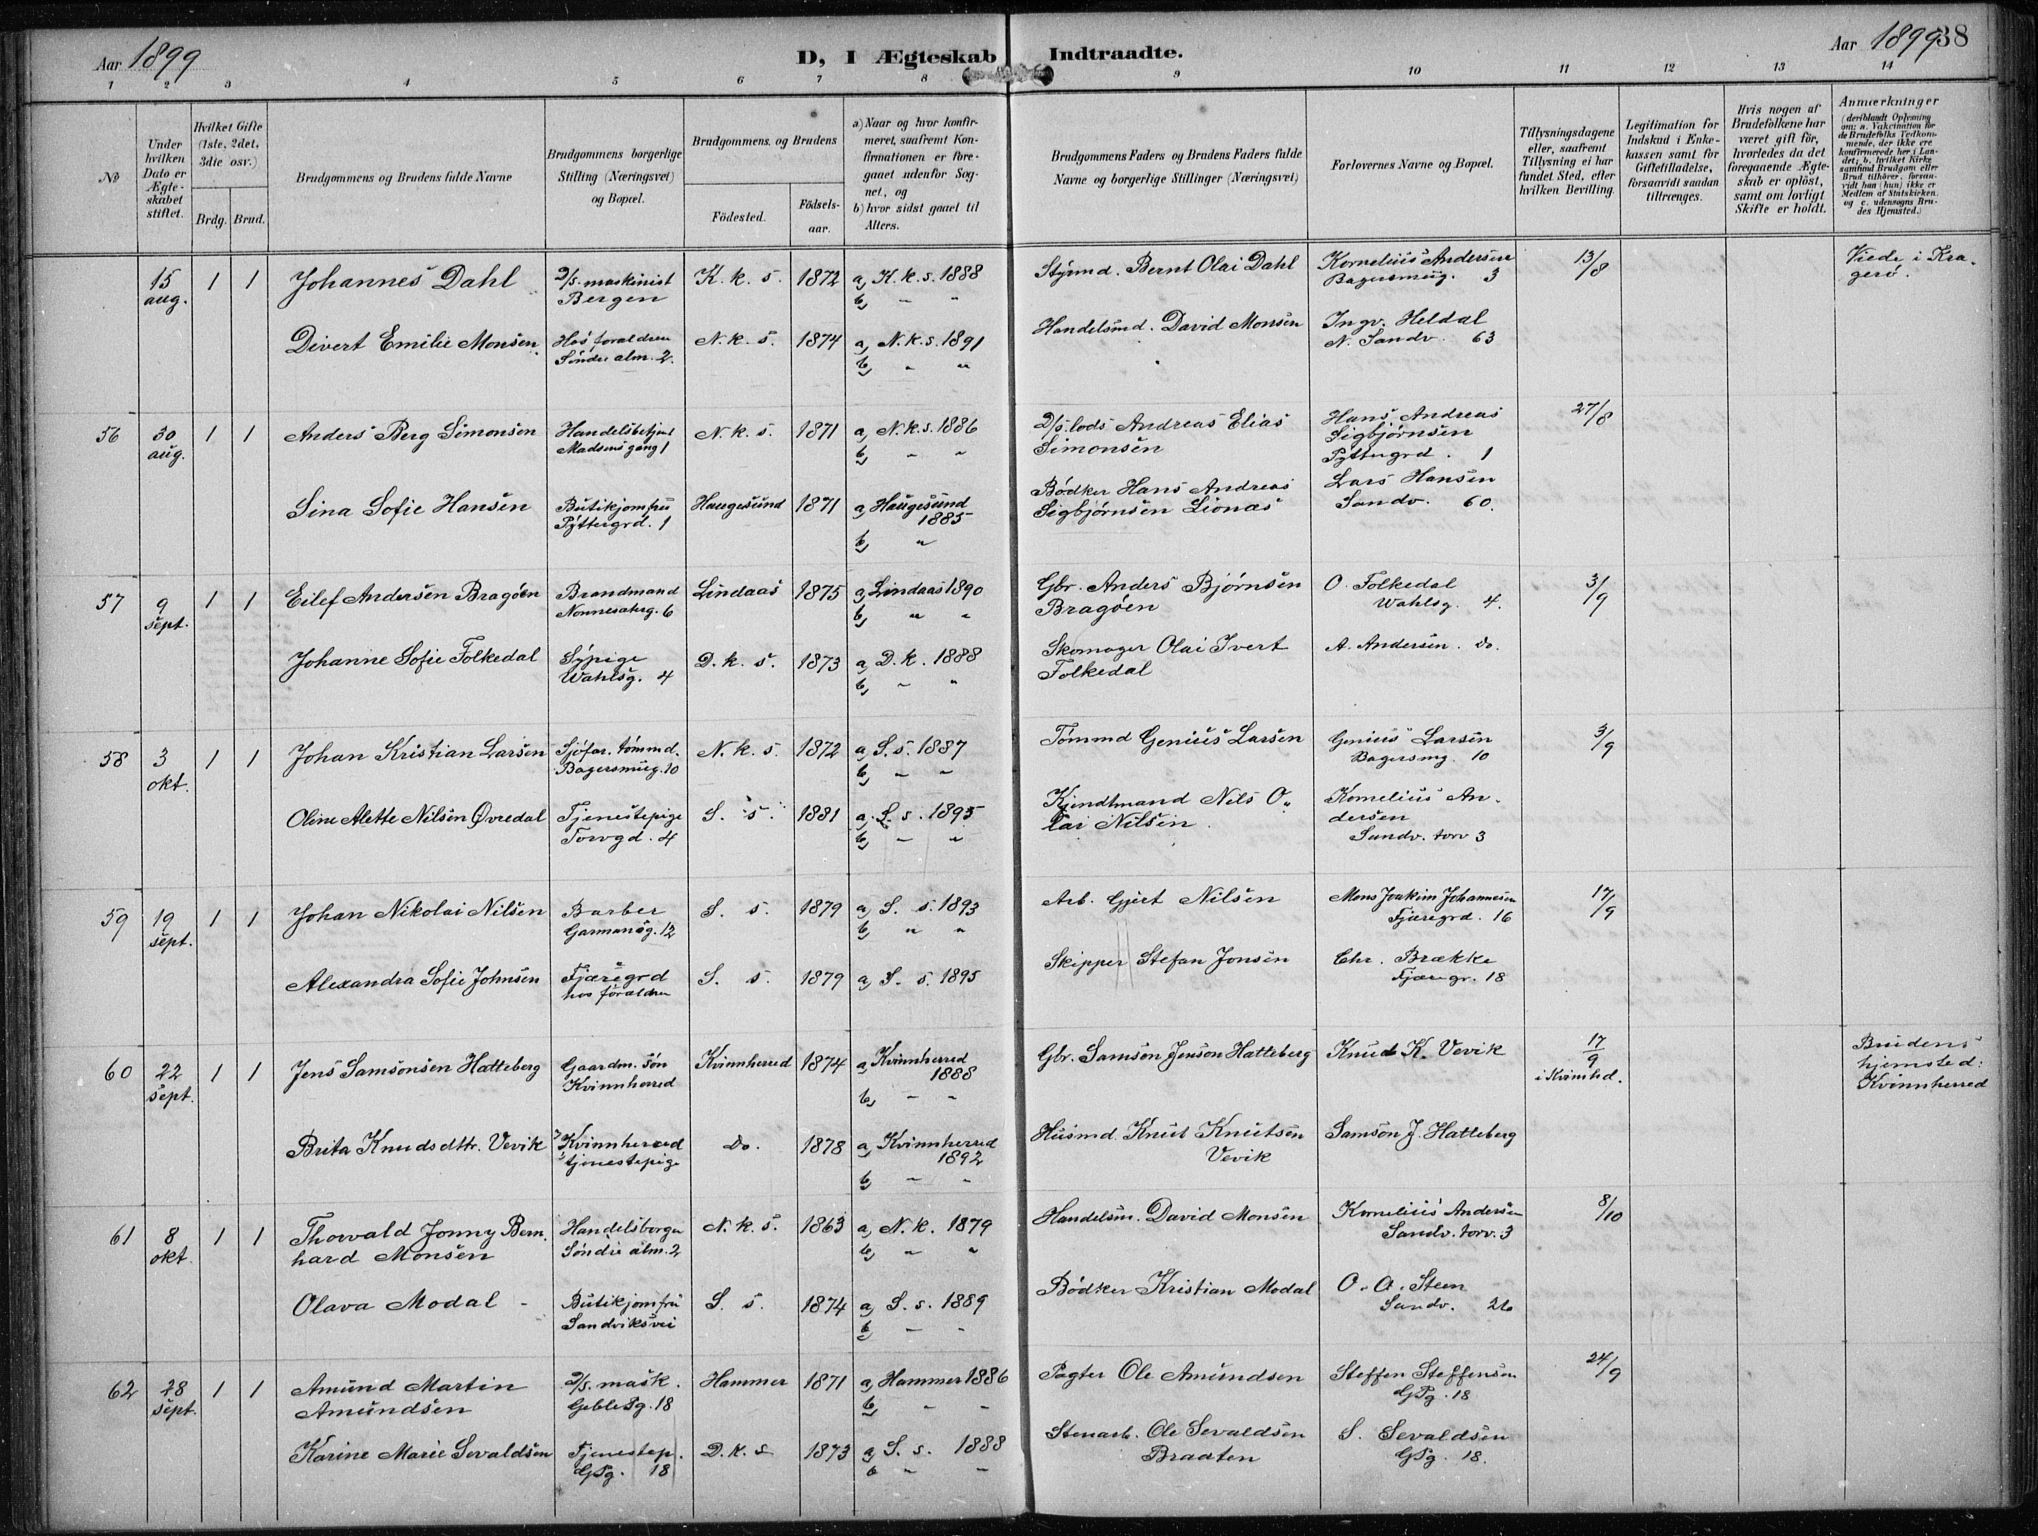 Aar 1899
D, I Ægteskab Indtraadte.
Aar 1899 38
1 2 3 4 5 6 7 8 9 10 11 12 13 14
No
Under hvilken Dato er Ægteskabet stiftet.
Hvilket Gifte (1ste, 2det, 3die osv.)
Brdg. Brud.
Brudgommens og Brudens fulde Navne
Brudgommens borgerlige Stilling (Næringsvei) og Bopæl.
Brudgommens og Brudens
Fødested.
Fødselsaar.
a) Naar og hvor konfirmeret, saafremt Konfirmationen er foregaaet udenfor Sognet, og
b) hvor sidst gaaet til Alters.
Brudgommens Faders og Brudens Faders fulde Navne og borgerlige Stillinger (Næringsvei)
Forlovernes Navne og Bopæl.
Tillysningsdagene eller, saafremt Tillysning ei har fundet Sted, efter hvilken Bevilling.
Legitimation for Indskud i Enkekassen samt for Giftetilladelse, forsaavidt saadan tiltrænges.
Hvis nogen af Brudefolkene har været gift før, hvorledes da det foregaaende Ægteskab er opløst, samt om lovligt Skifte er holdt.
Anmærkninger (deriblandt Oplysning om: a. Vakcination for de Brudefolks Vedkommende, der ikke ere konfirmerede her i Landet; b. hvilket Kirkesamfund Brudgom eller Brud tilhører, forsaavidt han (hun) ikke er Medlem af Statskirken, og c. udensogns Brudes Hjemsted.)
15 aug. 1 1 Johannes Dahl D/s. maskinist Bergen K. k. s. 1872 a) K. k. s. 1888 b) " " Styrmd. Bernt Olai Dahl Kornelius Andersen Bagersmug. 3 13/8 Viede i Kragerø.
Divert Emilie Monsen Hos forældren Søndre alm. 2. N. k. s. 1874 a) N. k. s. 1891 b) " " Handelsmd. David Monsen Ingv. Heldal N. Sandv. 63
56 30 aug. 1 1 Anders Berg Simonsen Handelsbetjent Madsens gang 1 N. k. s. 1871 a) N. k. s. 1886 b) " " D/s. lods Andreas Elias Simonsen Hans Andreas Sigbjørnsen Pyttergrd. 1 27/8
Sina Sofie Hansen Butikjomfru Pyttergrd. 1 Haugesund 1871 a) Haugesund 1885 b) " Bødker Hans Andreas Sigbjørnsen Lionæs Lars Hansen Sandv. 60.
57 9 sept. 1 1 Eilef Andersen Bragøen Brandmand Nonnesaterg. 6 Lindaas 1875 a) Lindaas 1890 b) " " Gbr. Anders Bjørnsen Bragøen O. Folkedal Wahlsg. 4. 3/9
Johanne Sofie Folkedal Sypige Wahlsg. 4 D. k. s. 1873 a) D. k. 1888 b) " " Skomager Olai Ivert Folkedal A. Andersen. do.
58 3 okt. 1 1 Johan Kristian Larsen Sjøfar. tømmd. Bagersmug. 10 N. k. s. 1872 a) S. s. 1887 b) " " Tømmd Genius Larsen Genius Larsen Bagersmg. 10 3/9
Oline Alette Nilsen Øvredal Tjenestepige Torvgd. 4 S. s. 1881 a) S. s. 1895 b) " " Kjendtmand Nils Olai Nilsen. Kornelius Andersen Sandv. torv 3
59 19 sept. 1 1 Johan Nikolai Nilsen Barber Garmansg. 12 S. s. 1879 a) S. s. 1893 b) " " Arb. Gjert Nilsen Mons Joakim Johannesen Fjæregrd. 16 17/9
Alexandra Sofie Johnsen Fjæregrd hos forældren S. s. 1879 a) S. s. 1895 Skipper Stefan Jonsen Chr. Brække Fjæregr. 18
60 22 sept. 1 1 Jens Samsonsen Hatteberg Gaardm. søn Kvinnherred Kvinnherred 1874 a) Kvinnherred 1888 b) " " Gbr. Samson Jenson Hatteberg Knud K. Vevik 17/9 i Kvinhd. Brudens hjemsted: Kvinnherred
Brita Knudsdttr. Vevik Kvinnherred tjenestepige do. 1878 a) Kvinnherred 1892 b) " " Husmd. Knut Knutsen Vevik Samson J. Hatteberg
61 8 okt. 1 1 Thorvald Jonny Bernhard Monsen Handelsborger Søndre alm. 2 N. k. s. 1863 a) N. k. 1879 b) " " Handelsm. David Monsen Kornelius Andersen Sandv. torv. 3 8/10
Olava Modal Butikjomfru Sandviksvei S. s. 1874 a) S. s. 1889 b) " " Bødker Kristian Modal O. A. Steen Sandv. 26
62 28 sept. 1 1 Amund Martin Amundsen D/s. mask. Geble Pg. 18 Hammer 1871 a) Hammer 1886 b) " " Pagter Ole Amundsen Steffen Steffensen G Pg. 18 24/9
Karine Marie Sevaldsen Tjenestep. G Pg. 18 D. k. s 1873 a) S. s. 1888 b) " " Stenarb. Ole Sevaldsen Braaten S. Sevaldsen G Pg. 18.